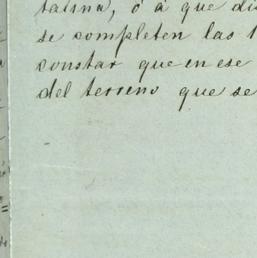 talina, ó á que di
se completen las
constar que en ese
del terreno que se